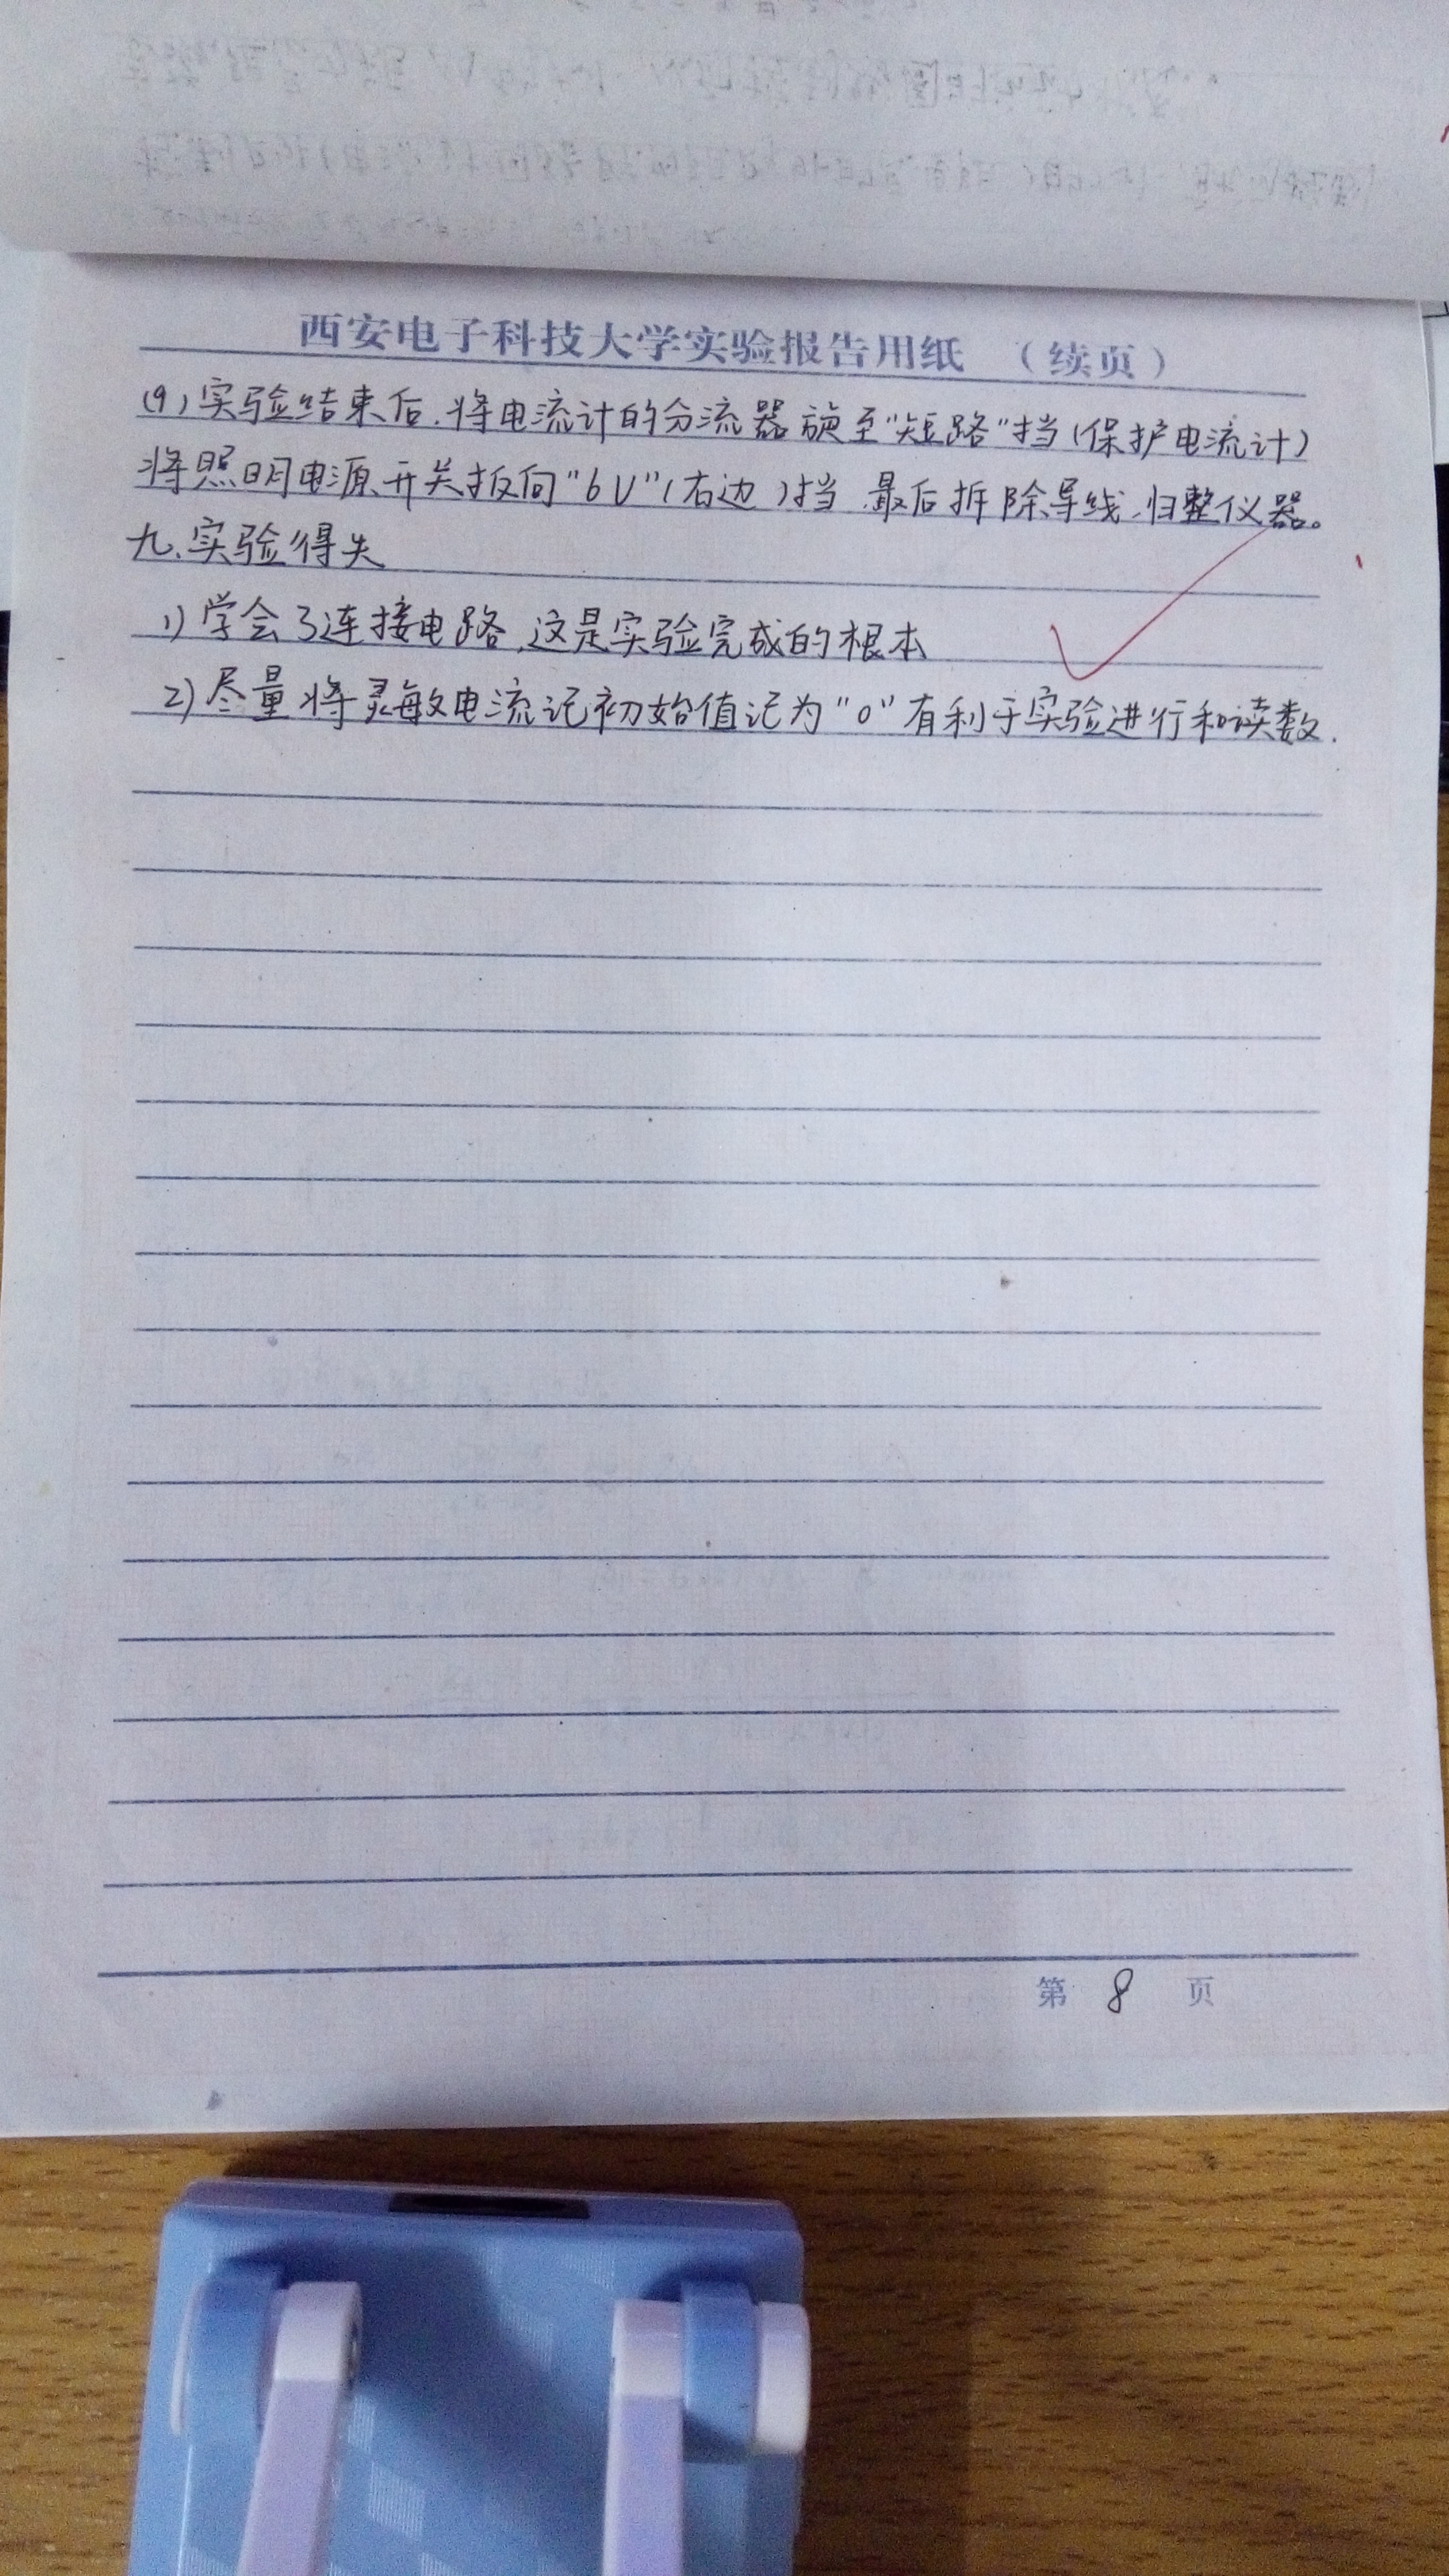 西安电子科技大学实验报告用纸 （续页）
(9)实验结束后.将电流计的分流器旋至“短路”挡(保护电流计)
将照明电源开关扳向“6V”(右边)挡.最后拆除导线.归整仪器。
九.实验得失
1)学会了连接电路,这是实验完成的根本
2)尽量将灵敏电流记初始值记为“0”有利于实验进行和读数.
第 8 页